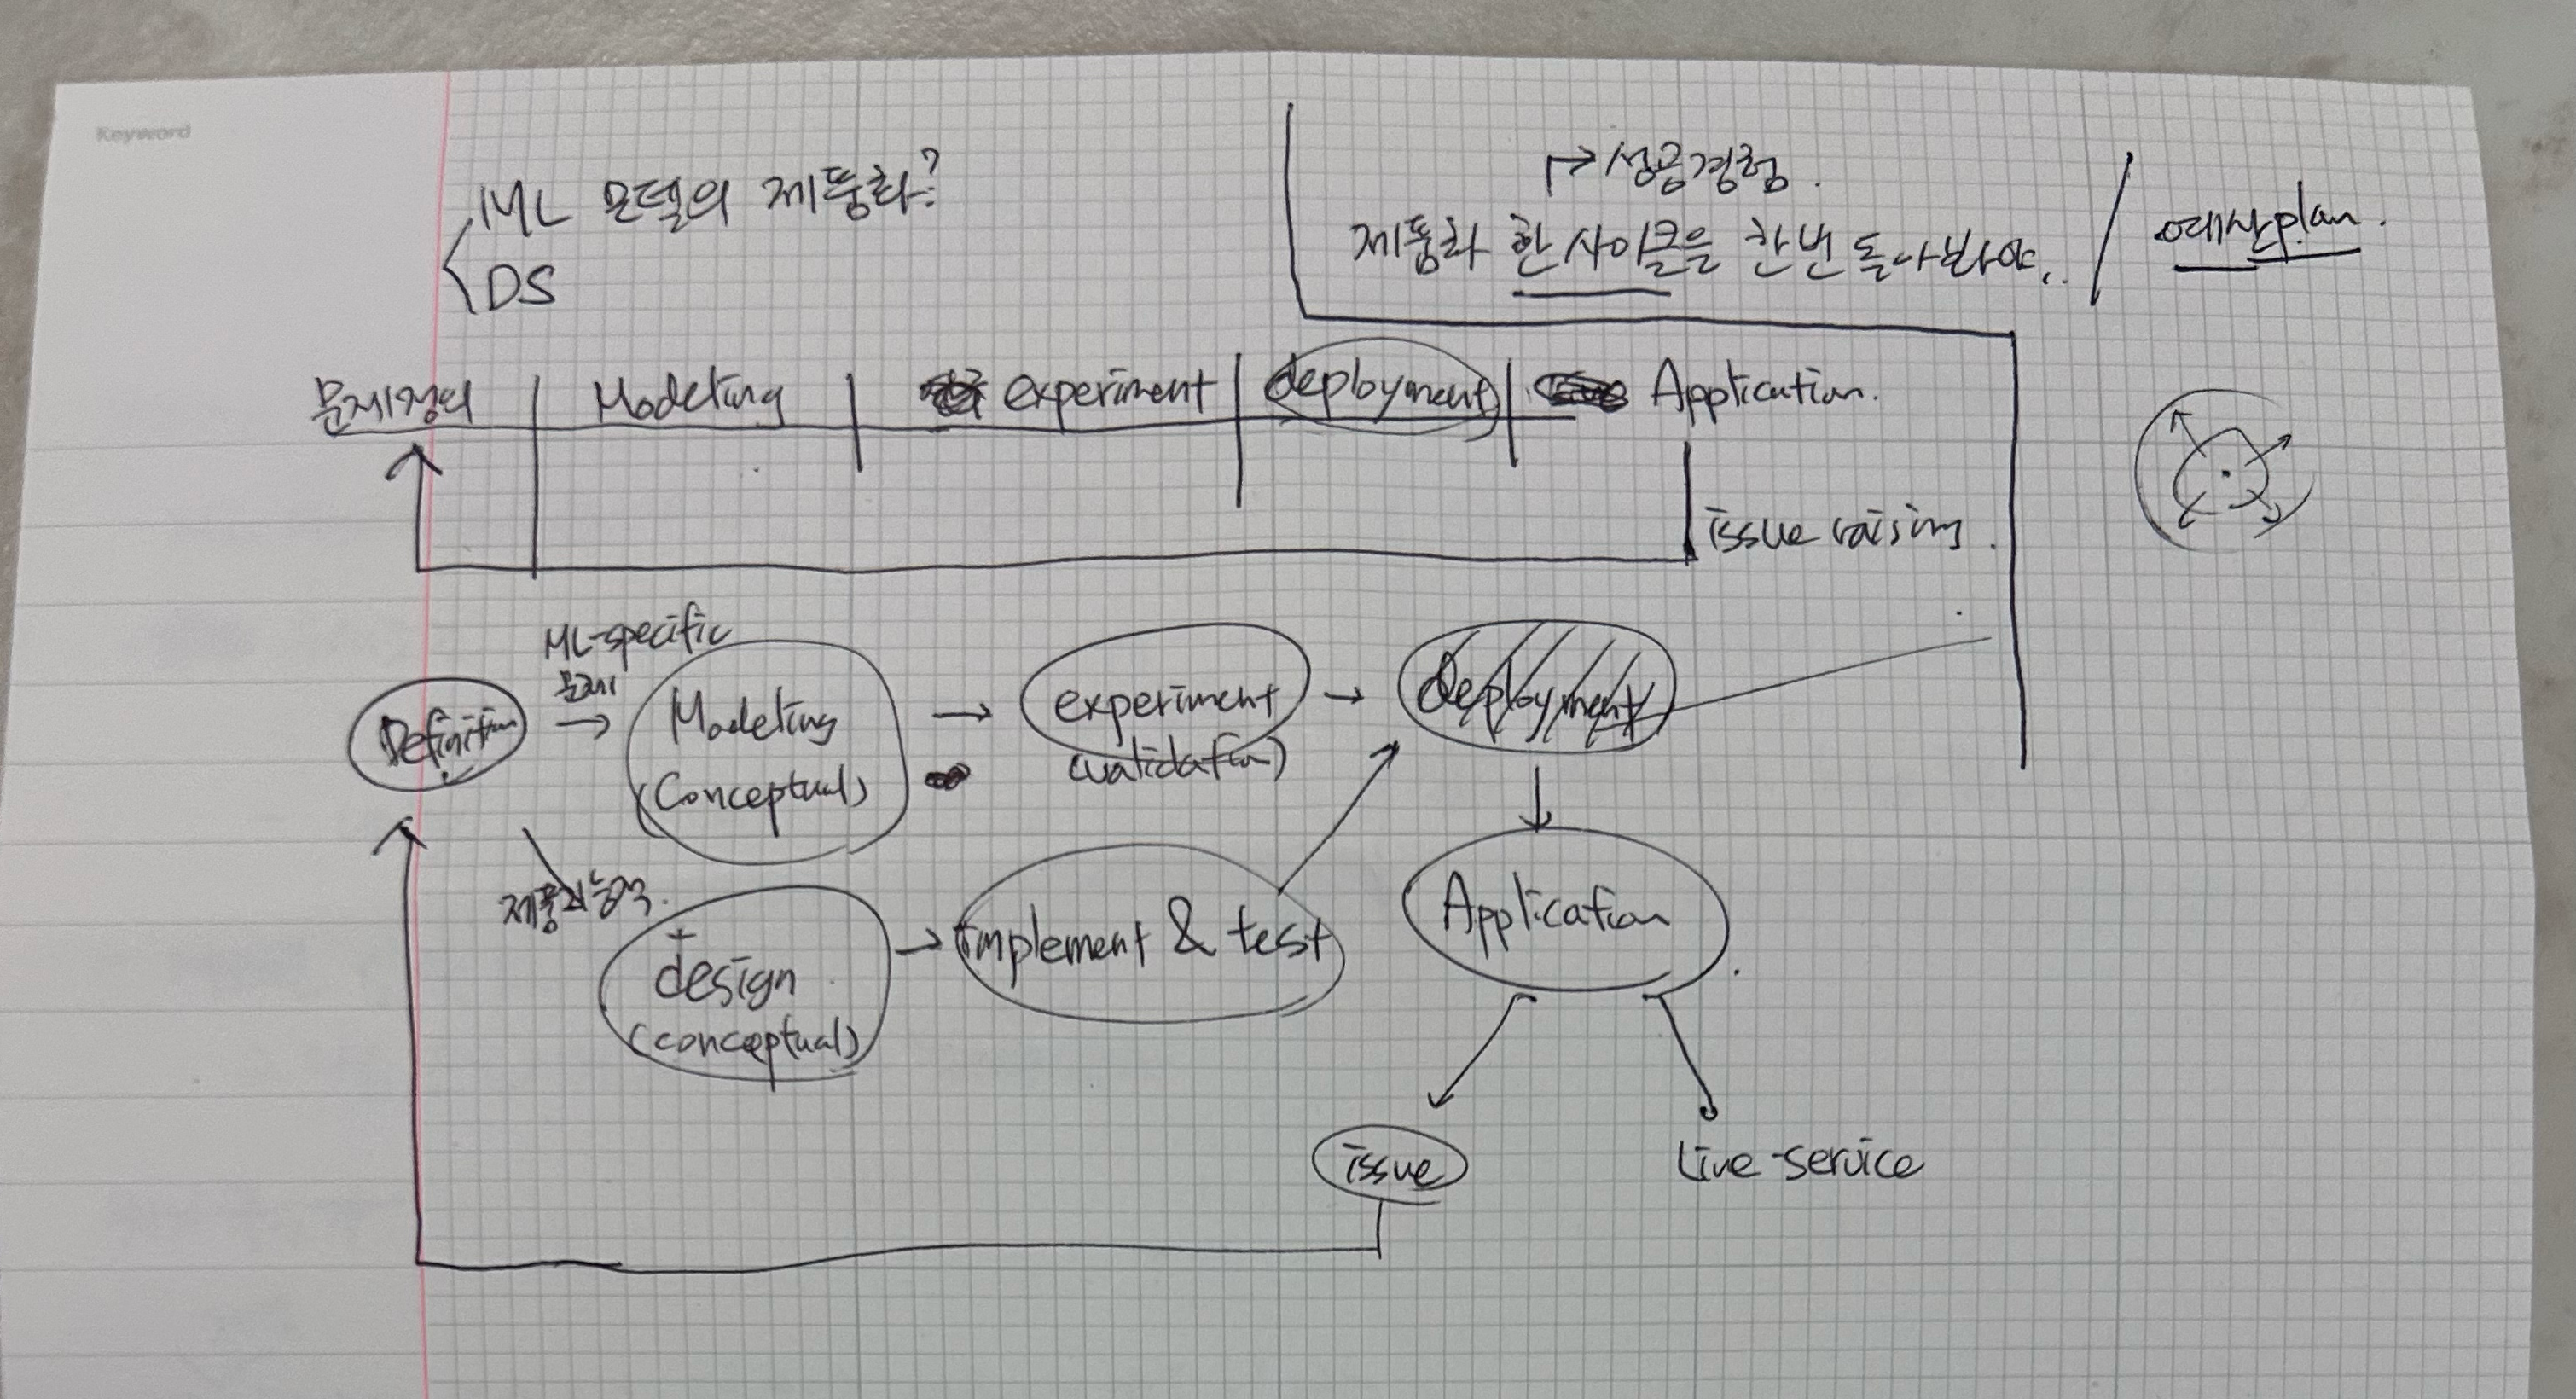 Keyword
ML 모델의 제품화?
DS
성공경험.
제품화 한 사이클을 한번 돌아봐야..
예산plan.
문제정의 Modeling experiment deployment Application.
issue raising.
ML-specific
문제
Definition
Modeling
(Conceptual)
experiment
(validation)
deployment
design
(conceptual)
implement & test
Application
issue
Live-service